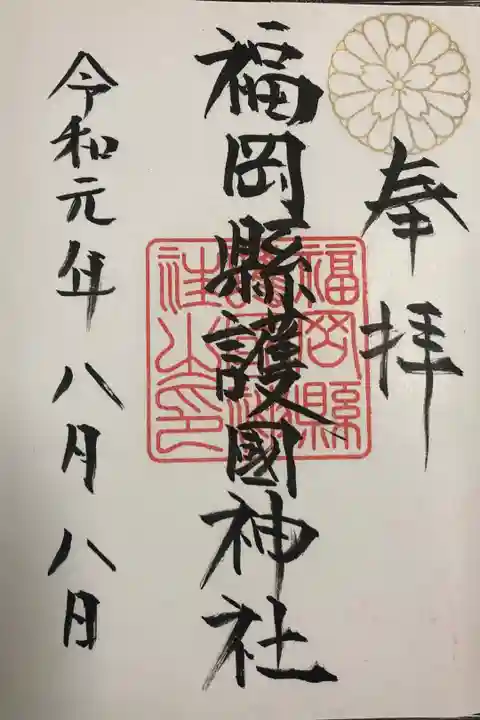 奉拝
福岡縣護國神社
福岡縣
社之印
令和元年八月八日